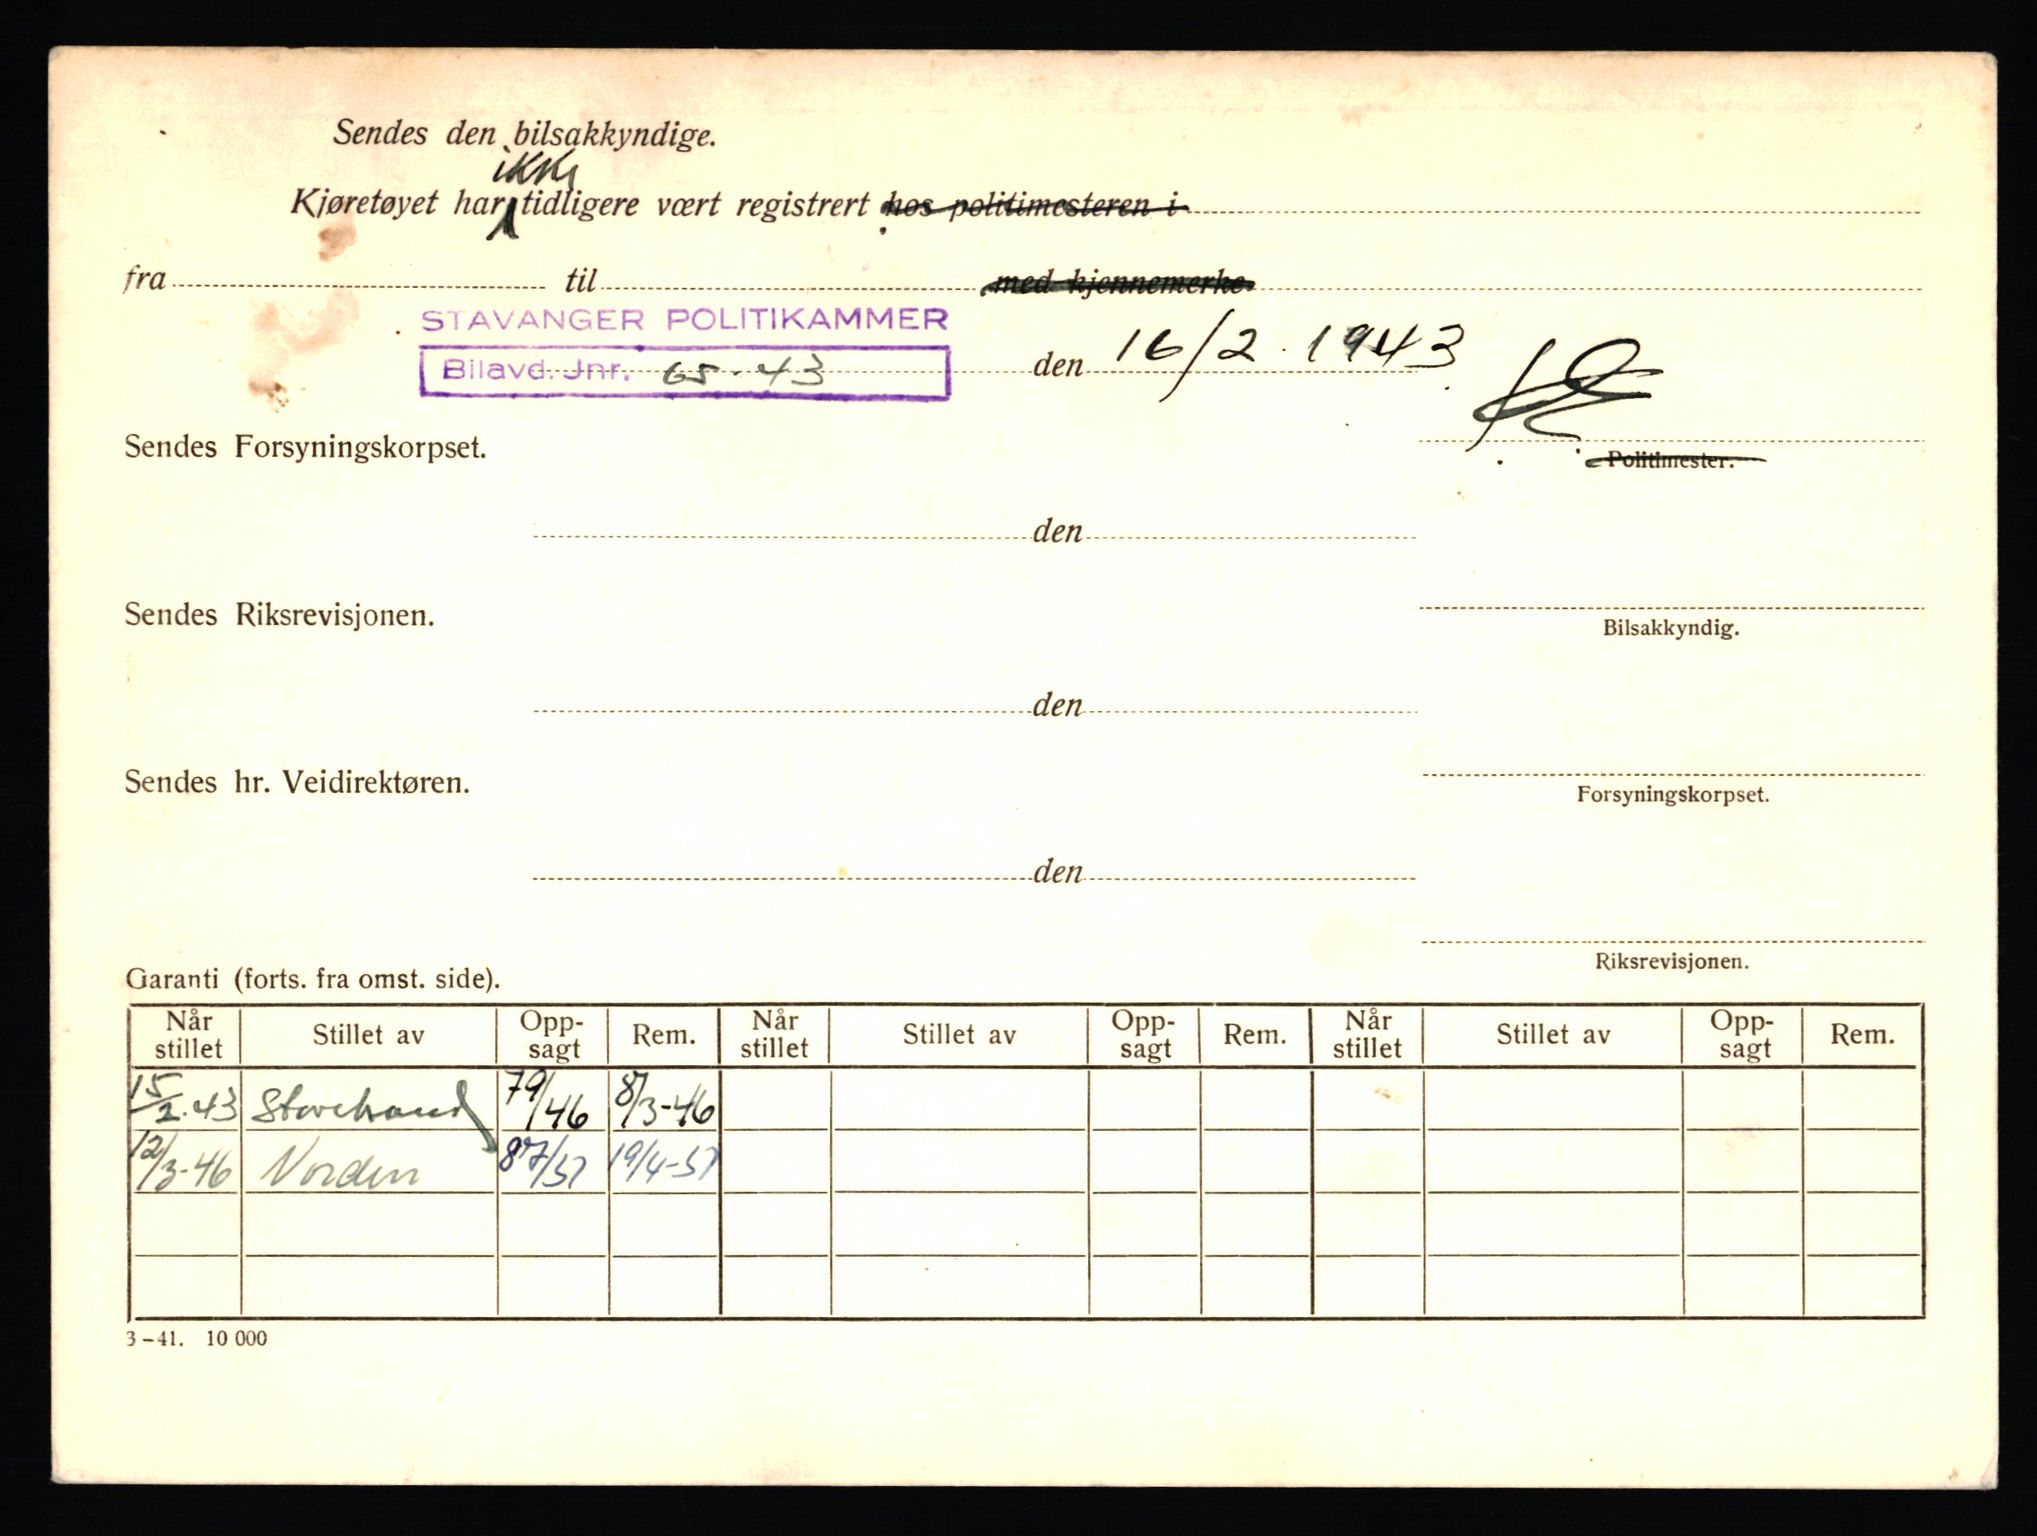 Sendes den bilsakkyndige.
ikke
Kjøretøyet har tidligere vært registrert hos politimesteren i
fra til med kjennemerke
STAVANGER POLITIKAMMER
Bilavd. Jnr. 65-43 den 16/2.1943
Sendes Forsyningskorpset.
Politimester.
den
Sendes Riksrevisjonen.
Bilsakkyndig.
den
Sendes hr. Veidirektøren.
Forsyningskorpset.
den
Riksrevisjonen.
Garanti (forts. fra omst. side).
Når stillet Stillet av Opp-sagt Rem. Når stillet Stillet av Opp-sagt Rem. Når stillet Stillet av Opp-sagt Rem.
15/2.43 Storebrand 79/46 8/3-46
12/3-46 Norden 87/51 19/4-51
3-41. 10 000